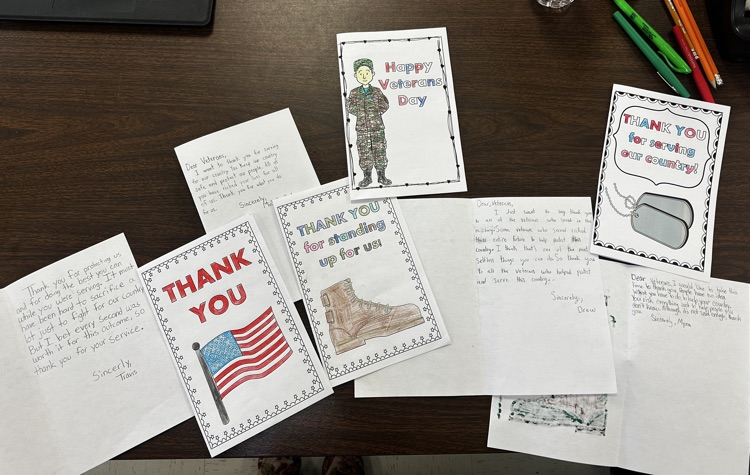 Happy
Veterans
Day
THANK YOU
for serving
our country!
Dear Veterans,
I want to thank you for serving
for our country to keep our country
safe and protect our people. All of
you have risked your lives for all
of us. Thank you for what you do
for us.
Sincerely,
THANK YOU
for standing
up for us!
Dear, Veterans,
I Just want to say thank you
to all of the veterans who served in the
military. Some veterans who served risked
their entire future to help protect this
country. I think that's one of the most
selfless things you can do. So thank you
to all the veterans who helped protect
and serve this country.
Sincerely,
Drew
THANK
YOU
Thank you for protecting us
and for doing the best you can
while you were serving. It must
have been hard to sacrifice a
lot just to fight for our country.
But I bet every second was
worth it for this outcome, so
thank you for your service.
Sincerely,
Travis
Dear Veterans, I would like to take this
time to thank you
you have to do to help your country.
You risk everything just to help people you
don't know. Although its not said enough, thank
you.
Sincerely,